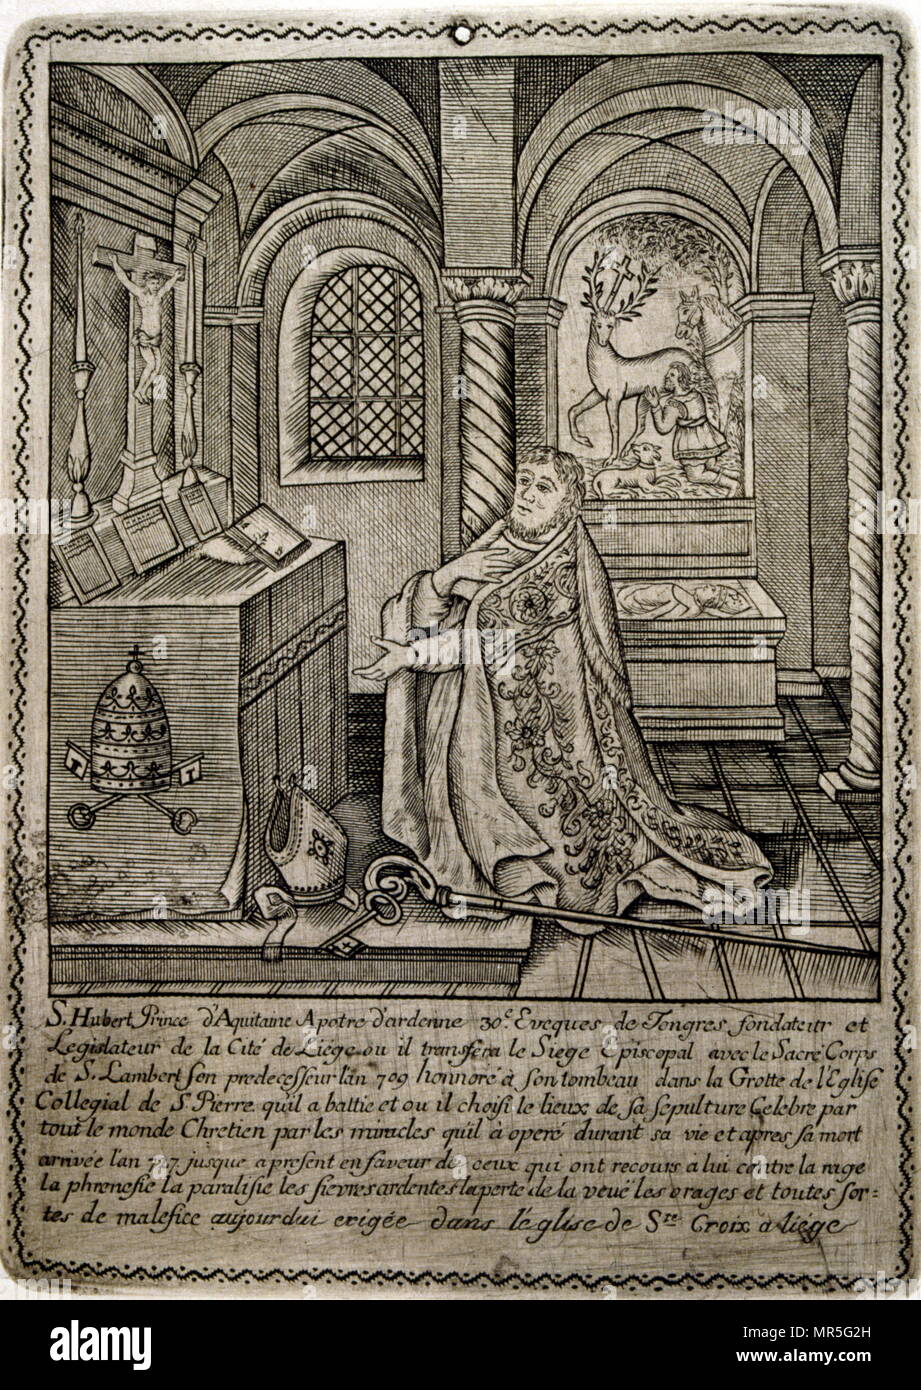 S. Hubert Prince d'Aquitaine Apotre d'ardenne 30e. Eveques de Tongres, fondateur et
Legislateur de la Cité de Liége ou il transfera le Siege Episcopal avec le Sacré Corps
de S. Lambert son predecesseur l'an 709 honnoré à son tombeau dans la Grotte de l'Eglise
Collegial de S. Pierre qu'il a battie et ou il choisi le lieux de sa sepulture Celebre par
tout le monde Chretien par les miracles qu'il à operé durant sa vie et apres sa mort
arrivée l'an jusque a present en faveur de ceux qui ont recours a lui contre la rage
la phrenesie la paralisie les fievres ardentes la perte de la veuë les orages et toutes sor=
tes de malefice aujourdui erigée dans l'église de Ste Croix à liége
a alamy stock photo
MR5G2H
www.alamy.com